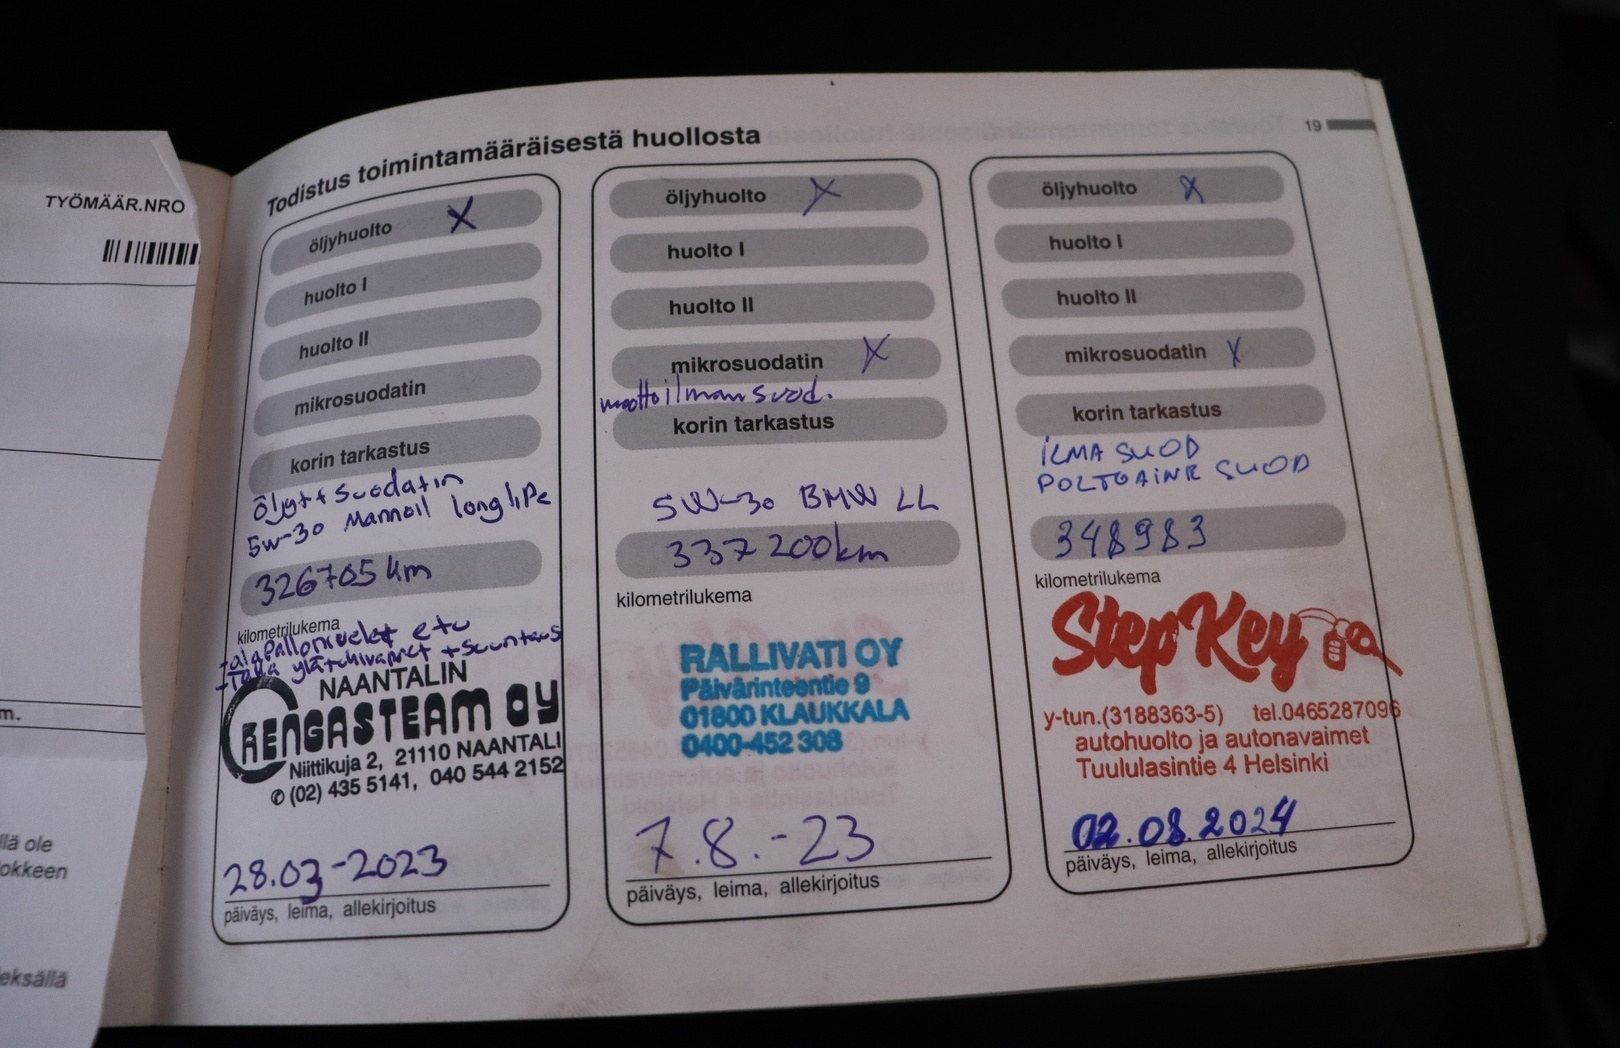 TYÖMÄÄR.NRO
m.
llä ole
okkeen
eksällä
19
Todistus toimintamääräisestä huollosta
öljyhuolto X
huolto I
huolto II
mikrosuodatin
korin tarkastus
öljyt+suodatin
5w-30 Mannoil longlife
326705 km
kilometrilukema
-alapallonivelet etu
-Taka ylätukivarret +suuntaus
NAANTALIN
RENGASTEAM OY
Niittikuja 2, 21110 NAANTALI
✆ (02) 435 5141, 040 544 2152
28.03-2023
päiväys, leima, allekirjoitus
öljyhuolto X
huolto I
huolto II
mikrosuodatin X
moottoilmansuod.
korin tarkastus
5W-30 BMW LL
337200km
kilometrilukema
RALLIVATI OY
Päivärinteentie 9
01800 KLAUKKALA
0400-452 308
7.8.-23
päiväys, leima, allekirjoitus
öljyhuolto X
huolto I
huolto II
mikrosuodatin X
korin tarkastus
ILMA SUOD
POLTOAINE SUOD
348983
kilometrilukema
StepKey
y-tun.(3188363-5) tel.0465287096
autohuolto ja autonavaimet
Tuululasintie 4 Helsinki
02.08.2024
päiväys, leima, allekirjoitus